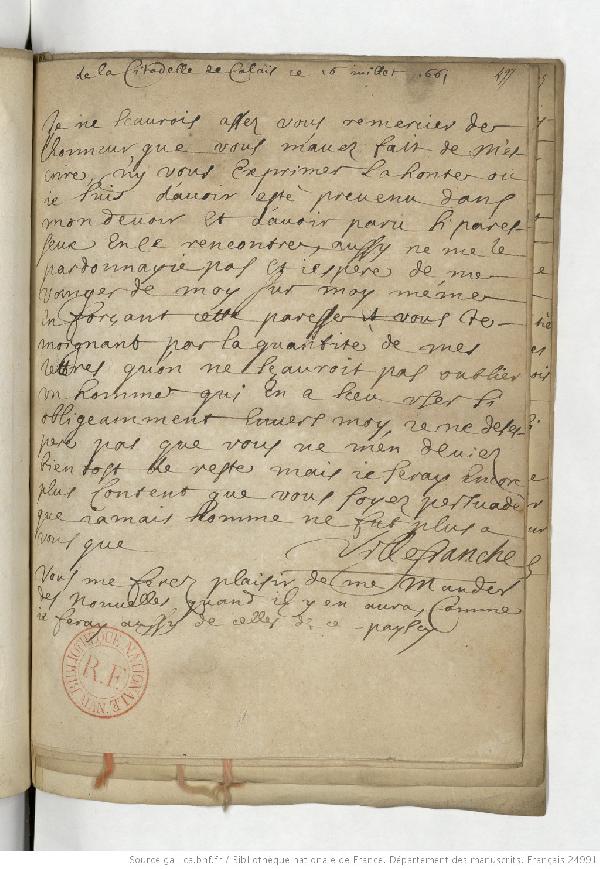 de la Citadelle de Calais ce 16 juillet 1661
Je ne scaurois assez vous remercier de
lhonneur que vous mauez fait de mes
crire, ny vous exprimer la honte ou
ie suis dauoir esté preuenu dans
mon deuoir et dauoir paru si pares
seux en ce rencontre, aussy ne me le
pardonnayie pas et iespere de me
vanger de moy sur moy mémé
en forçant cette paresse et vous te
moignant par la quantité de mes
lettres quon ne scauroit pas oublier
vn homme qui en a sceu vser si
obligeamment enuers moy, ie ne deses
pere pas que vous ne men deuiez
bien tost de reste mais ie seray encore
plus content que vous soyez persuadé
que iamais homme ne fut plus a
vous que Villefranche
Vous me ferez plaisir de me mander
des nouuelles quand il y en aura, comme
ie feray aussy de celles de ce paÿs cy
BIBLIOTHEQUE NATIONALE MAN
R.F.
Source gallica.bnf.fr / Bibliothèque nationale de France. Département des manuscrits. Français 24991